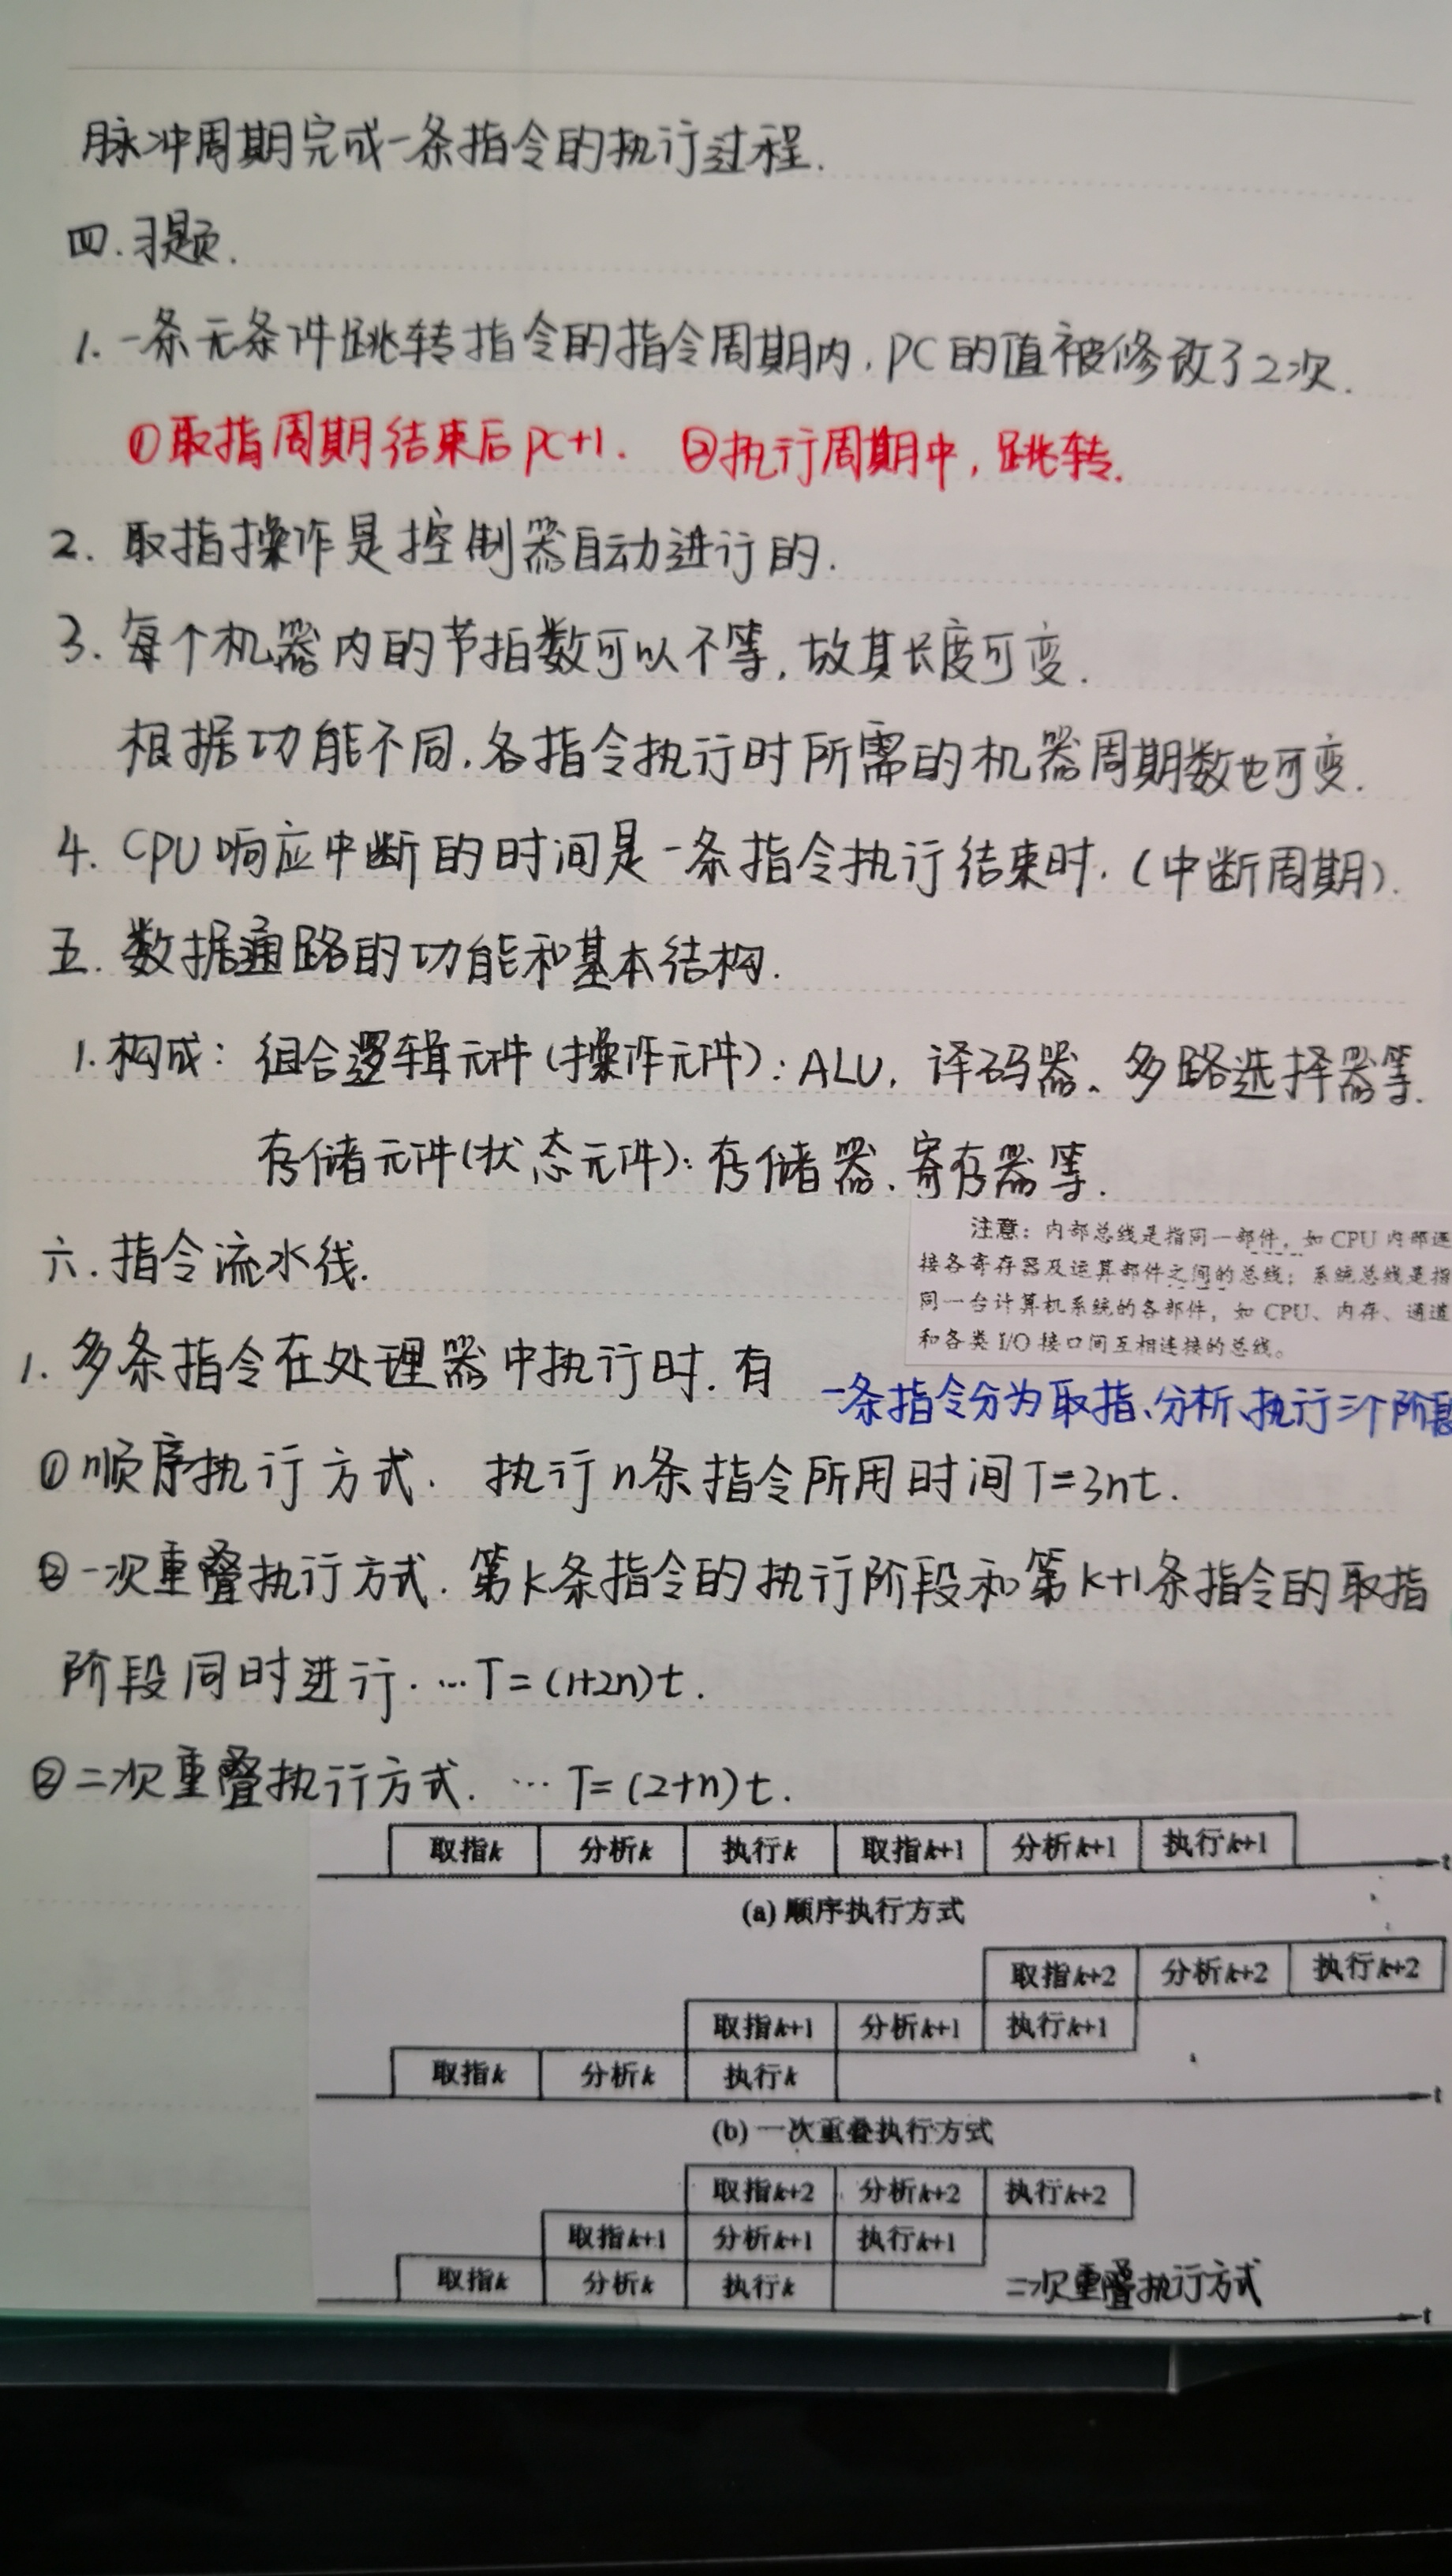 脉冲周期完成一条指令的执行过程.
四.习题.
1.一条无条件跳转指令的指令周期内,PC的值被修改了2次.
①取指周期结束后PC+1. ②执行周期中,跳转.
2.取指操作是控制器自动进行的.
3.每个机器内的节拍数可以不等,故其长度可变.
根据功能不同,各指令执行时所需的机器周期数也可变.
4.CPU响应中断的时间是一条指令执行结束时.(中断周期).
五.数据通路的功能和基本结构.
1.构成:组合逻辑元件(操作元件):ALU,译码器、多路选择器等.
存储元件(状态元件):存储器、寄存器等.
注意:内部总线是指同一部件,如 CPU 内部连
接各寄存器及运算部件之间的总线;系统总线是指
同一台计算机系统的各部件,如 CPU、内存、通道
和各类 I/O 接口间互相连接的总线。
六.指令流水线.
1.多条指令在处理器中执行时.有
一条指令分为取指、分析、执行三个阶段
①顺序执行方式. 执行n条指令所用时间T=3nt.
②一次重叠执行方式.第k条指令的执行阶段和第k+1条指令的取指
阶段同时进行.…T=(1+2n)t.
②二次重叠执行方式. …T=(2+n)t.
取指k 分析k 执行k 取指k+1 分析k+1 执行k+1
t
(a) 顺序执行方式
取指k+2 分析k+2 执行k+2
取指k+1 分析k+1 执行k+1
取指k 分析k 执行k
t
(b) 一次重叠执行方式
取指k+2 分析k+2 执行k+2
取指k+1 分析k+1 执行k+1
取指k 分析k 执行k
二次重叠执行方式
t